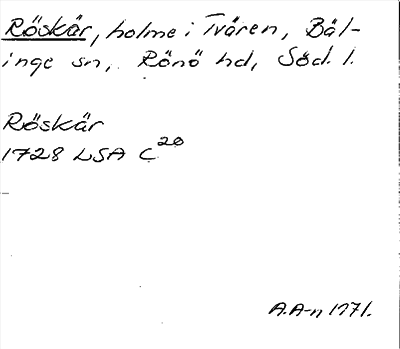 Röskär, holme i Tvären, Bäl-
inge sn, Rönö hd, Söd. l.
Röskär
1728 LSA C 20
A.A-n 1971.